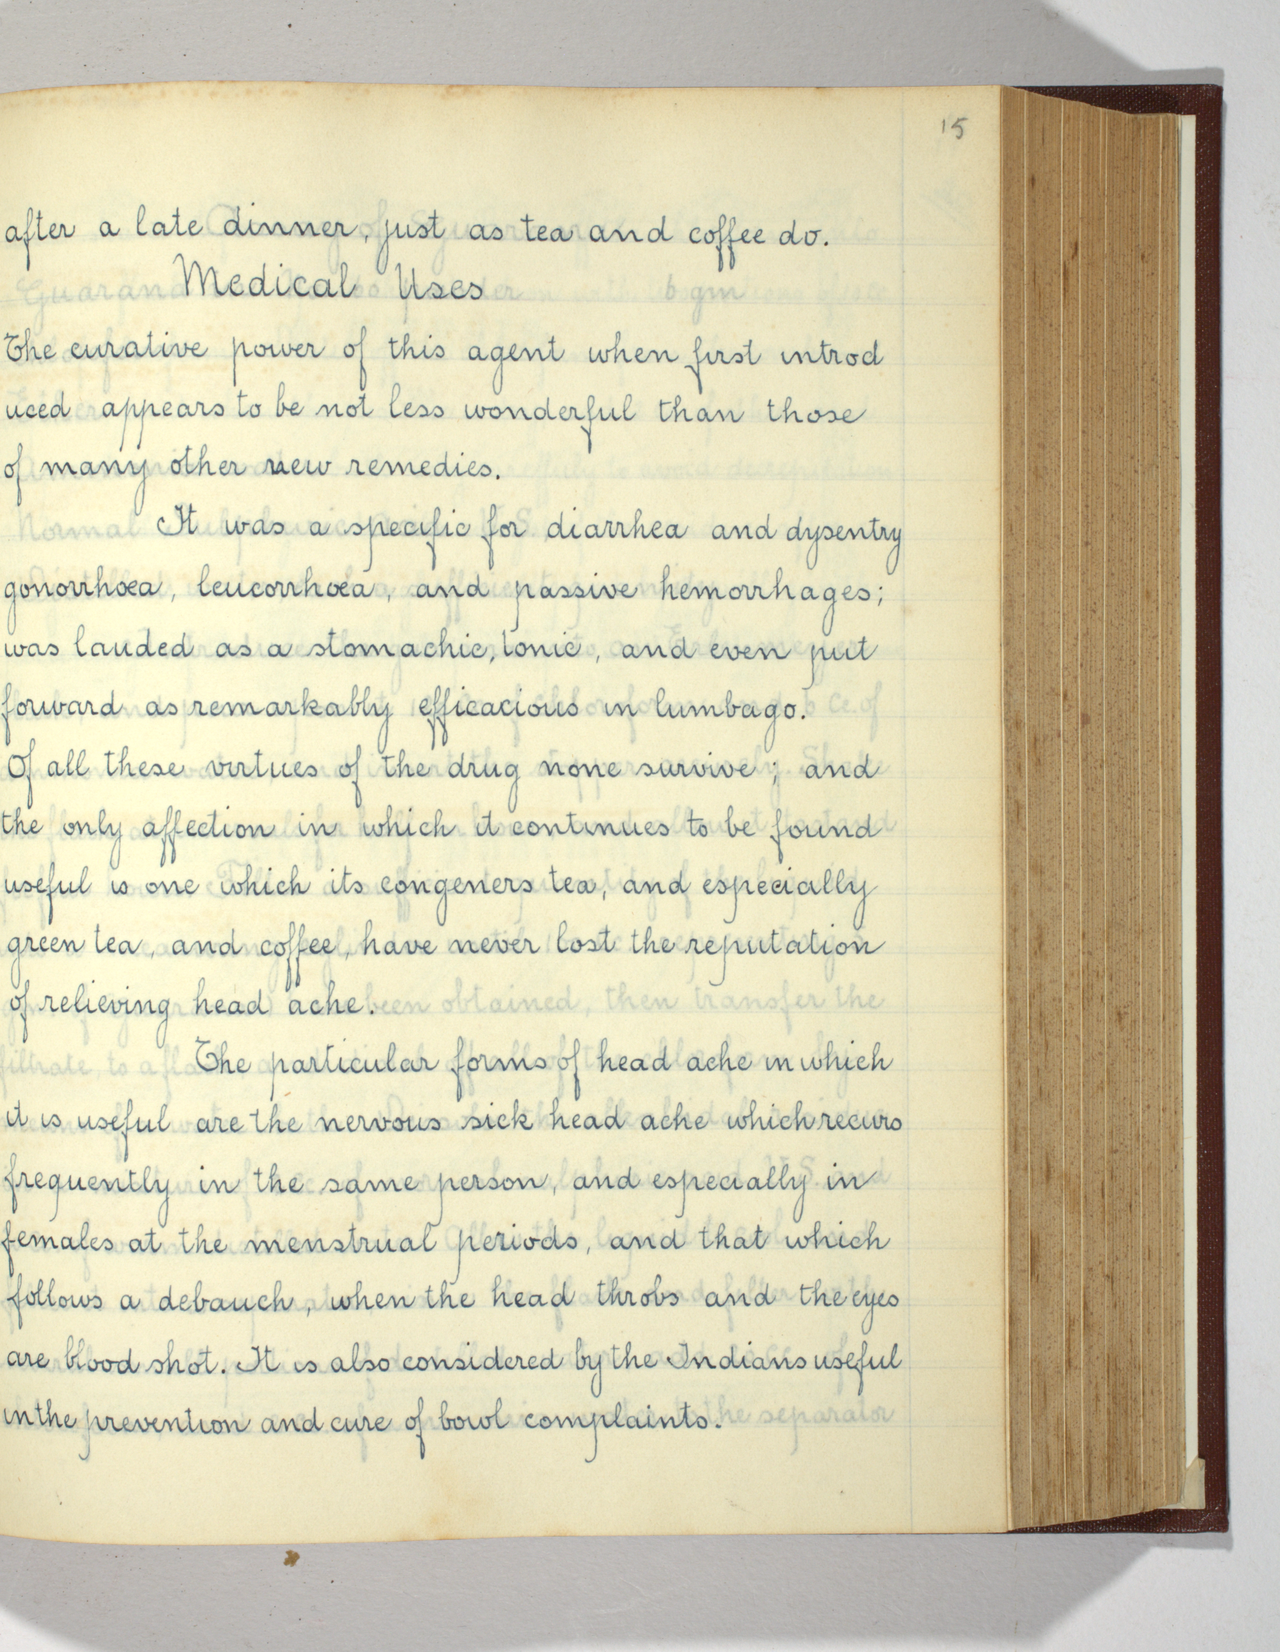 15
after a late dinner, just as tea and coffee do.
Medical Uses
The curative power of this agent when first introd
uced appears to be not less wonderful than those
of many other new remedies.
It was a specific for diarrhea and dysentry
gonorrhoea, leucorrhoea, and passive hemorrhages;
was lauded as a stomachic, tonic, and even put
forward as remarkably efficacious in lumbago.
Of all these virtues of the drug none survive; and
the only affection in which it continues to be found
useful is one which its congeners tea, and especially
green tea, and coffee, have never lost the reputation
of relieving head ache.
The particular forms of head ache in which
it is useful are the nervous sick head ache which recurs
frequently in the same person, and especially in
females at the menstrual periods, and that which
follows a debauch, when the head throbs and the eyes
are blood shot. It is also considered by the Indians useful
in the prevention and cure of bowl complaints.